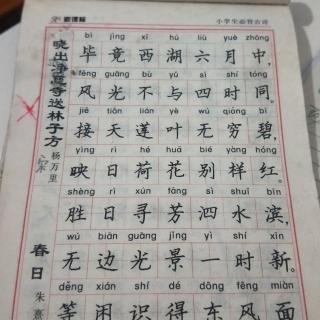 小学生必背古诗
晓出净慈寺送林子方
杨万里
bì jìng xī hú liù yuè zhōng
毕竟西湖六月中,
fēng guāng bù yǔ sì shí tóng
风光不与四时同。
jiē tiān lián yè wú qióng bì
接天莲叶无穷碧,
yìng rì hé huā bié yàng hóng
映日荷花别样红。
春日
朱熹
shèng rì xún fāng sì shuǐ bīn
胜日寻芳泗水滨,
wú biān guāng jǐng yì shí xīn
无边光景一时新。
děng xián shí dé dōng fēng miàn
等闲识得东风面